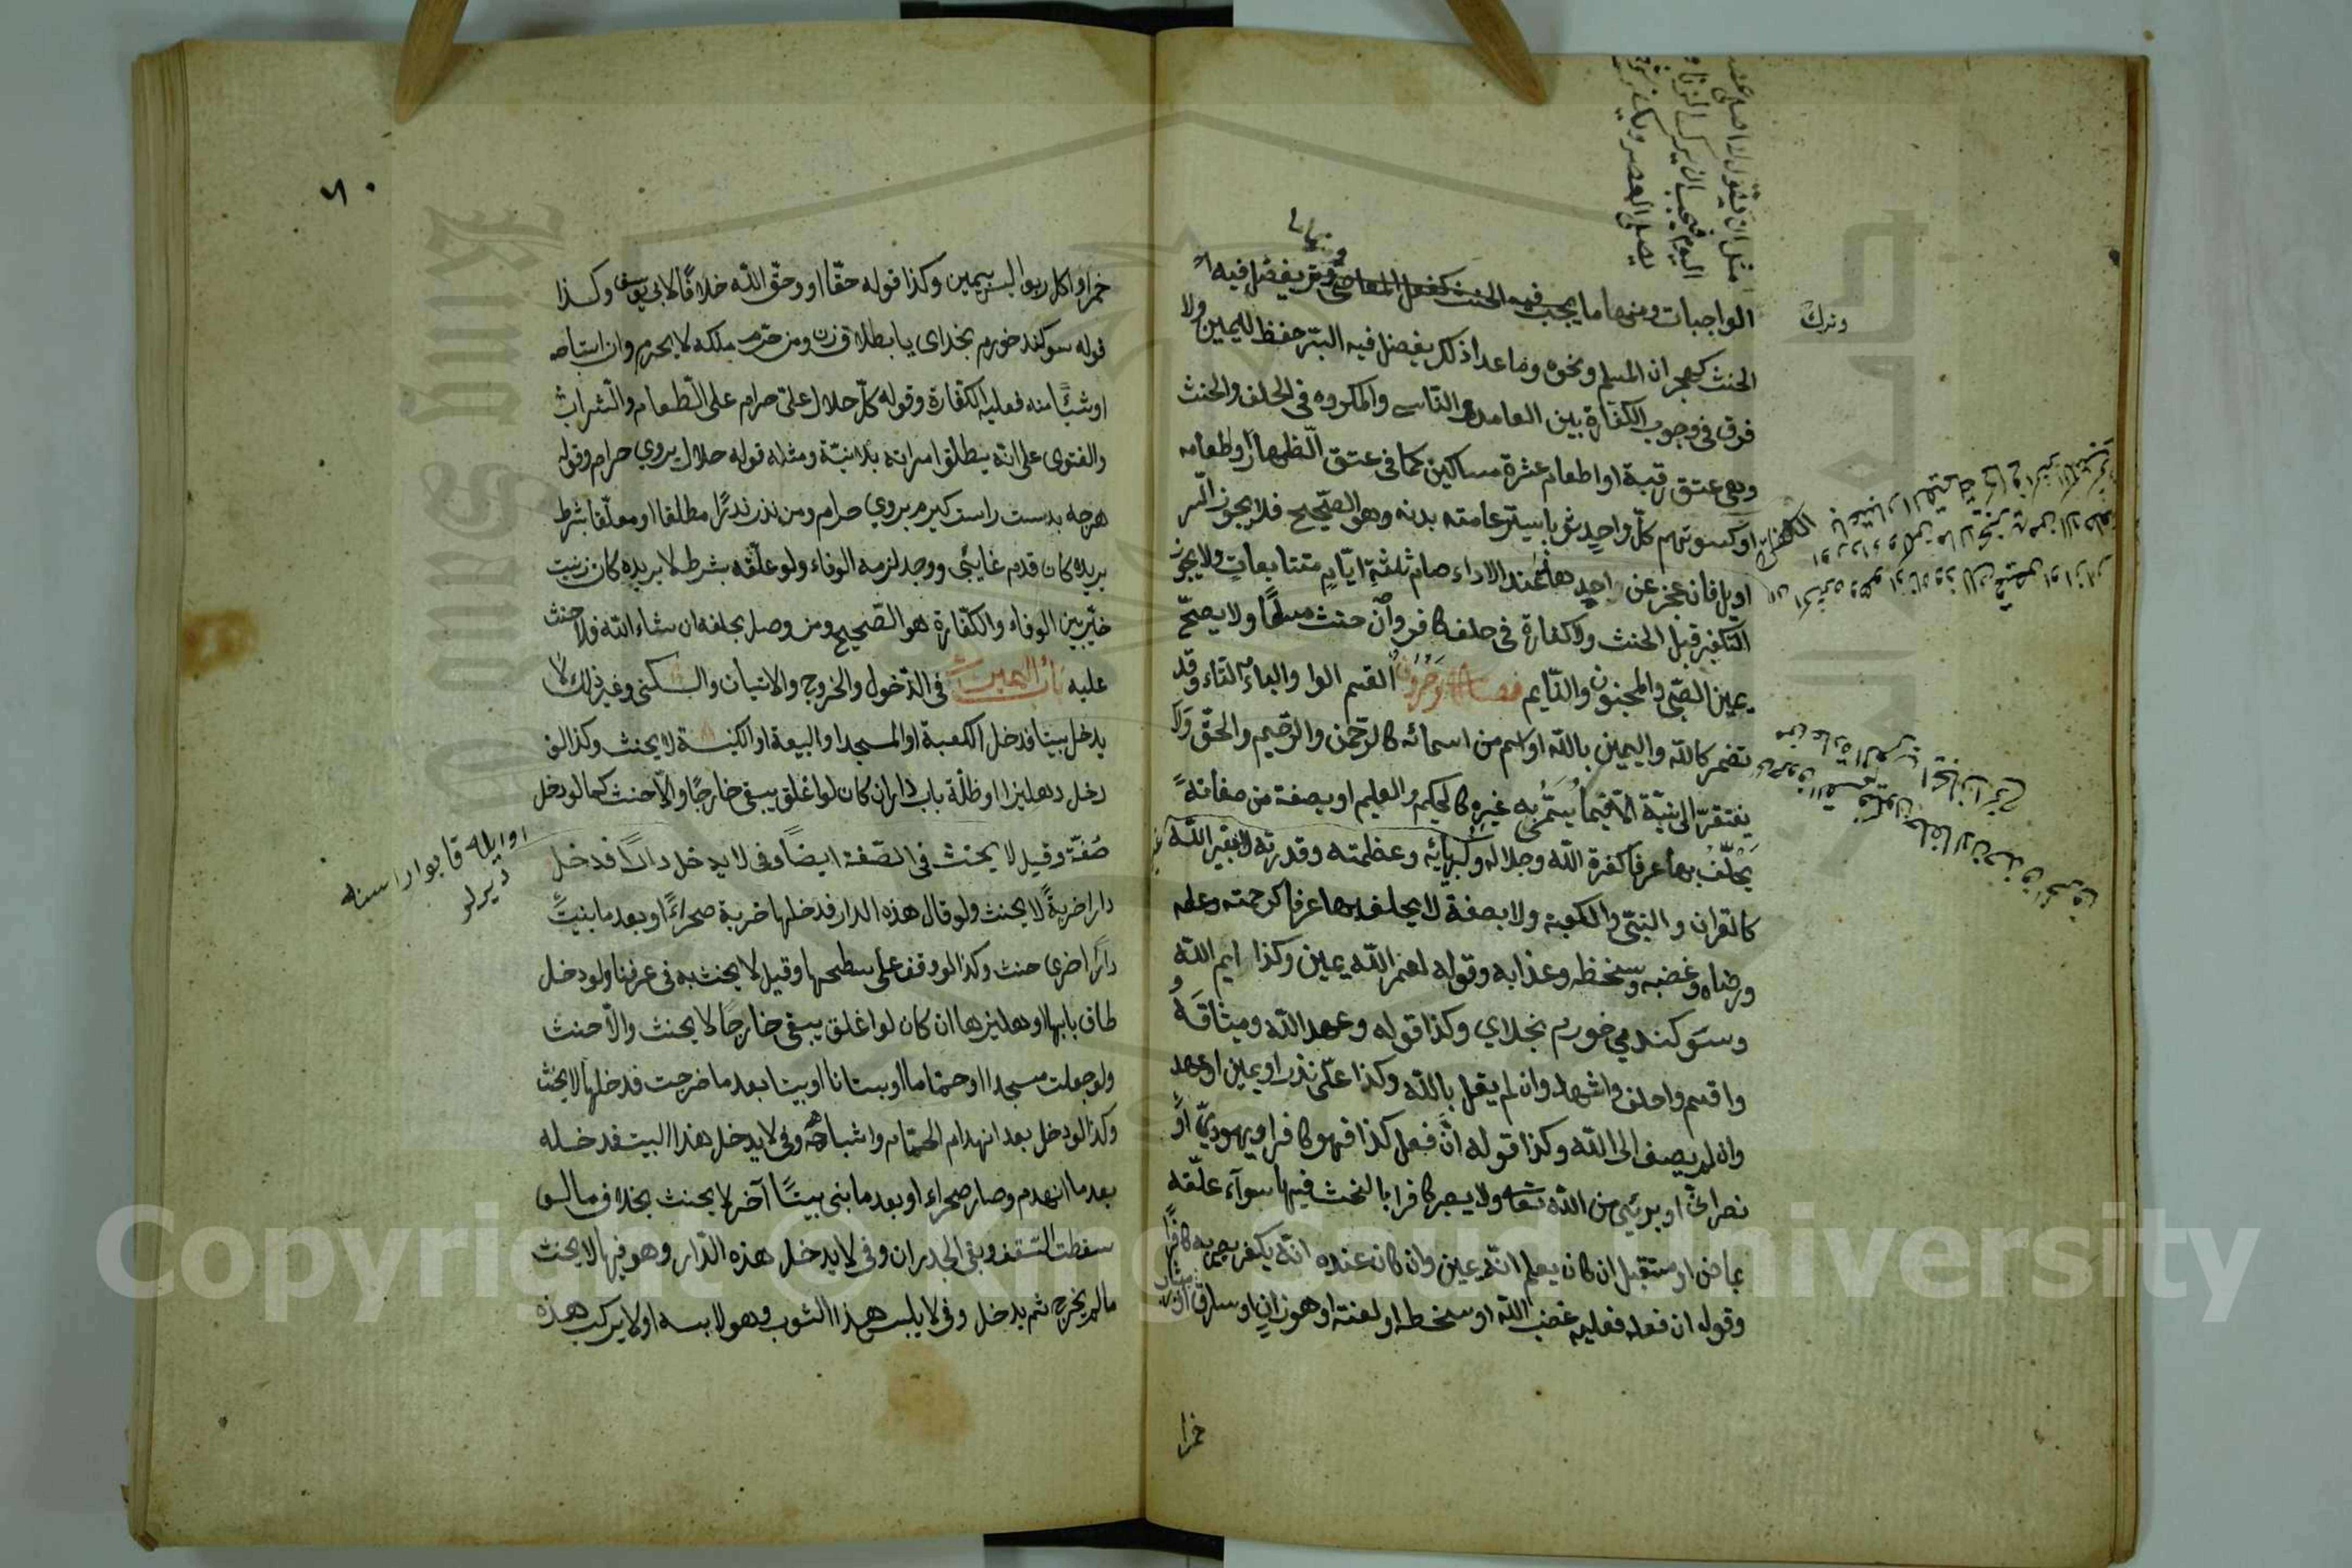 الواجبات ومنها ما يجب فيه الحنث كفعل المعاصي ومنها ما يفضل فيه
الحنث كهجران المسلم ونحوه وما عدا ذلك يفضل فيه البر حفظا لليمين ولا
فرق في وجوب الكفارة بين العامد والناسي والمكروه في الحلف والحنث
وهي عتق رقبة او اطعام عشرة مساكين كما في عتق الظهار واطعامه
او كسوتهم كل واحد ثوبا يستر عامته بدنه وهو الصحيح فلا يجوز السر
اويل فان عجز عن احدها عند الاداء صام ثلثة ايام متتابعات ولا يجوز
التكفير قبل الحنث ولا كفارة في حلف كافر وان حنث مسلما ولا يصح
يمين الصبي والمجنون والنايم فصل وحروف القسم الواو والباء التاء وقد
تضمر كالله واليمين بالله او اسم من اسمائه كالرحمن والرحيم والحق ولا
يفتقر الى نية الا فيما يسمى به غيره كالحكيم والعليم او بصفة من صفاته
يحلف بها عرفا كعزة الله وجلاله وكبريائه وعظمته وقدرته لا بغير الله
كالقران والنبي والكعبة ولا بصفة لا يحلف بها عرفا كرحمته وعلمه
ورضاه وغضبه وسخطه وعذابه وقوله لعمر الله يمين وكذا ايم الله
وسوكند مي خورم بخداي وكذا قوله وعهد الله وميثاقه و
واقسم واحلف واشهد وان لم يقل بالله وكذا علي نذر او يمين او عهد
وان لم يضف الى الله وكذا قوله ان فعل كذا فهو كافر او يهودي او
نصراني او بريئ من الله تعالى ولا يصير كافرا بالحنث فيها سوآء علقه
بماض او مستقبل ان كان يعلم انه يمين وان كان عنده انه يكفر يصير به كافرا
وقوله ان فعله فعليه غضب الله او سخطه او لعنته او هو زان او سارق او شارب
خمرا
وترك
مثل ان يقول والله اصلي عصر
اليوم فيجب ان يترك الزنا
يصلي العصر ويكفر
٦٠
خمر او اكل ربوا ليس بيمين وكذا قوله حقا او وحق الله خلافا لابي يوسف وكذا
قوله سوكند خورم بخداى يا بطلاق زن ومن حرم ملكه لا يحرم وان استباحه
او شيئا منه فعليه الكفارة وقوله كل حلال علي حرام على الطعام والشراب
والفتوى على انه يطلق امراته بلا نية ومثله قوله حلال بروي حرام وقوله
هرچه بدست راست كيرم بروي حرام ومن نذر نذرا مطلقا او معلقا بشرط
يريده كان قدم غايبي ووجد لزمه الوفاء ولو علقه بشرط لا يريده كان زنيت
خير بين الوفاء والكفارة هو الصحيح ومن وصل بحلفه ان شاء الله فلا حنث
عليه باب اليمين في الدخول والخروج والاتيان والسكنى وغير ذلك لا
يدخل بيتا فدخل الكعبة او المسجد او البيعة او الكنيسة لا يحنث وكذا لو
دخل دهليزا او ظلة باب دار ان كان لو اغلق يبقى خارجا والا حنث كما لو دخل
صفة وقيل لا يحنث في الصفة ايضا وفي لا يدخل دارا فدخل
دارا خربة لا يحنث ولو قال هذه الدار فدخلها خربة صحراء او بعد ما بنيت
دارا اخرى حنث وكذا لو وقف على سطحها وقيل لا يحنث به في عرفنا ولو دخل
طاق بابها او دهليزها ان كان لو اغلق يبقى خارجا لا يحنث والا حنث
ولو جعلت مسجدا او حماما او بستانا او بيتا بعد ما خرجت فدخلها لا يحنث
وكذا لو دخل بعد انهدام الحمام واشباهه وفي لا يدخل هذا البيت فدخله
بعد ما انهدم وصار صحراء او بعد ما بنى بيتا آخر لا يحنث بخلاف ما لو
سقطت السقف وبقى الجدران وفي لا يدخل هذه الدار وهو فيها لا يحنث
ما لم يخرج ثم يدخل وفي لا يلبس هذا الثوب وهو لابسه او لا يركب هذه
Copyright © King Saud University